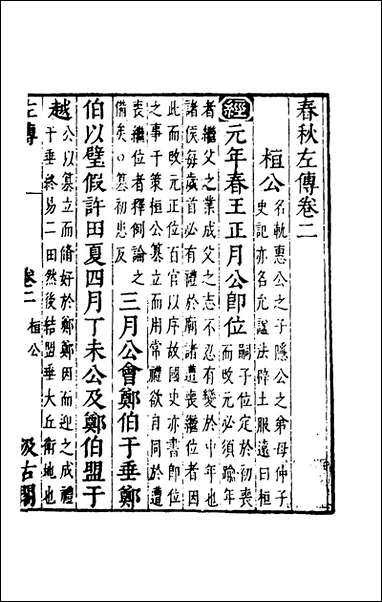 春秋左傳卷二
桓公
名軌惠公之子隱公之弟母仲子
史記亦名允諡法辟土服遠曰桓
經元年春王正月公卽位
嗣子位定於初喪
而改元必須踰年
者繼父之業成父之志不忍有變於中年也
諸侯每歲首必有禮於廟諸遭喪繼位者因
此而改元正位百官以序故國史亦書卽位
之事于策桓公簒立而用常禮欲自同於遭
喪繼位者釋例論之
備矣○簒初患反
三月公會鄭伯于垂鄭
伯以璧假許田夏四月丁未公及鄭伯盟于
越
公以簒立而脩好於鄭鄭因而迎之成禮
于垂終易二田然後結盟垂大丘衛地也
左傳 卷二 桓公 汲古閣